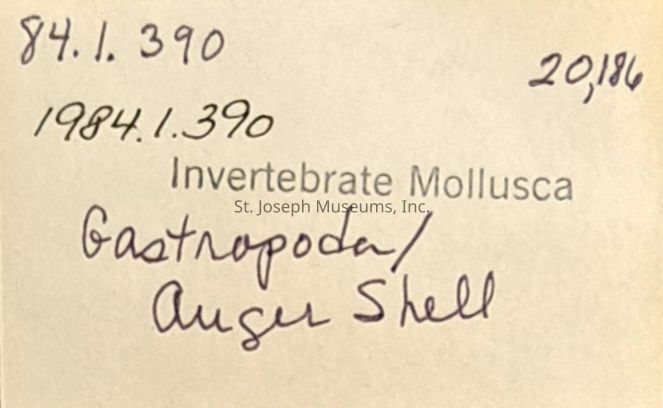 84.1.390
20,186
1984.1.390
Invertebrate Mollusca
St. Joseph Museums, Inc.
Gastropoda/
Auger Shell